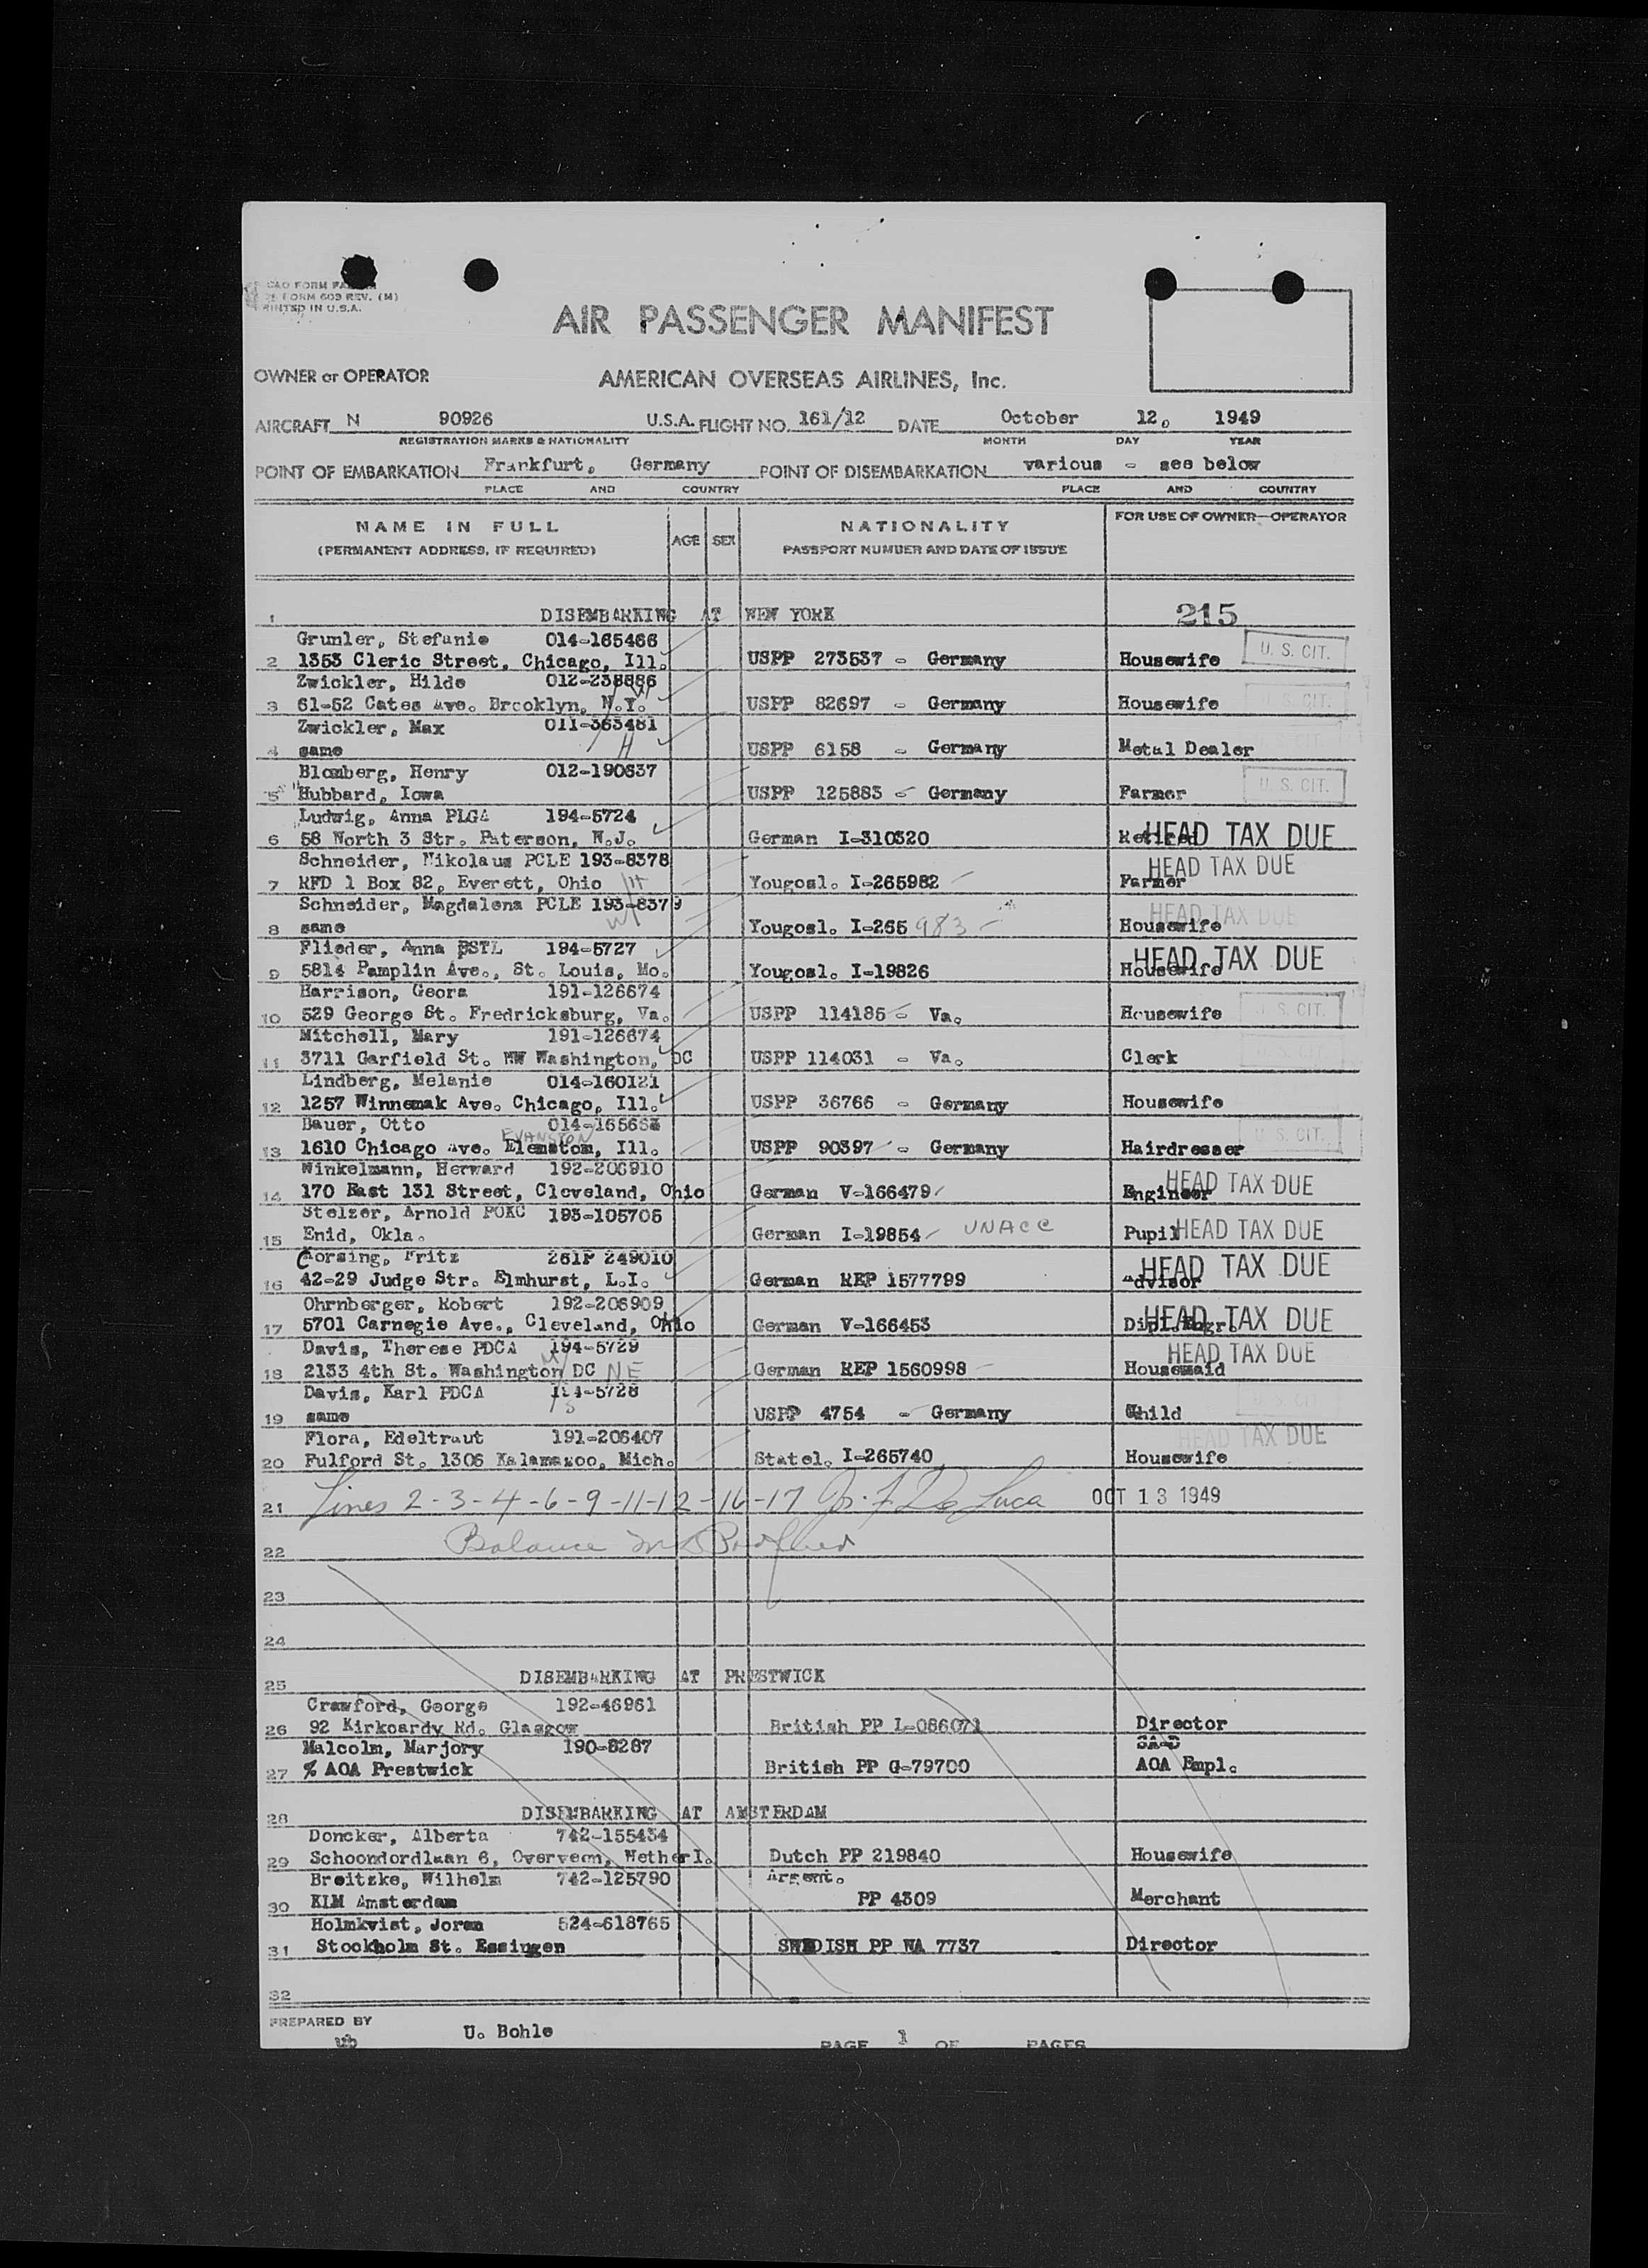 CAO FORM
FORM 609 REV. (M)
PRINTED IN U.S.A.
AIR PASSENGER MANIFEST
OWNER or OPERATOR AMERICAN OVERSEAS AIRLINES, Inc.
AIRCRAFT N 90926 U.S.A. FLIGHT NO. 161/12 DATE October 12, 1949
REGISTRATION MARKS & NATIONALITY MONTH DAY YEAR
POINT OF EMBARKATION Frankfurt, Germany POINT OF DISEMBARKATION various - see below
PLACE AND COUNTRY PLACE AND COUNTRY
NAME IN FULL
(PERMANENT ADDRESS, IF REQUIRED) AGE SEX NATIONALITY
PASSPORT NUMBER AND DATE OF ISSUE FOR USE OF OWNER-OPERATOR
1 DISEMBARKING AT NEW YORK 215
Grunler, Stefanie 014-165466
2 1353 Cleric Street, Chicago, Ill. USPP 273537 - Germany Housewife U. S. CIT.
Zwickler, Hilde 012-238886
3 61-52 Cates Ave. Brooklyn, N.Y. W USPP 82697 - Germany Housewife U. S. CIT.
Zwickler, Max 011-363481
4 same H USPP 6158 - Germany Metal Dealer
Blomberg, Henry 012-190637
5 Hubbard, Iowa USPP 125883 - Germany Farmer U. S. CIT.
Ludwig, Anna PLGA 194-5724
6 58 North 3 Str. Paterson, N.J. German I-310320 Retired HEAD TAX DUE
Schneider, Nikolaus PCLE 193-8378
7 RFD 1 Box 82, Everett, Ohio H Yougosl. I-265982 Farmer HEAD TAX DUE
Schneider, Magdalena PCLE 193-8379
8 same W Yougosl. I-265 983 Housewife HEAD TAX DUE
Flieder, Anna PSTL 194-5727
9 5814 Pamplin Ave., St. Louis, Mo. Yougosl. I-19826 Housewife HEAD TAX DUE
Harrison, Geora 191-126674
10 529 George St. Fredricksburg, Va. USPP 114185 - Va. Housewife U. S. CIT.
Mitchell, Mary 191-126674
11 3711 Garfield St. NW Washington, DC USPP 114031 - Va. Clerk
Lindberg, Melanie 014-160121
12 1257 Winnemak Ave. Chicago, Ill. USPP 36766 - Germany Housewife
Bauer, Otto 014-165663
EVANSTON
13 1610 Chicago Ave. Elenstom, Ill. USPP 90397 - Germany Hairdresser U. S. CIT.
Winkelmann, Herward 192-206910
14 170 East 131 Street, Cleveland, Ohio German V-166479 Engineer HEAD TAX DUE
Stelzer, Arnold POKC 193-105705
15 Enid, Okla. German I-19854 UNACC Pupil HEAD TAX DUE
Corsing, Fritz 261P 249010
16 42-29 Judge Str. Elmhurst, L.I. German REP 1577799 Advisor HEAD TAX DUE
Ohrnberger, Robert 192-206909
17 5701 Carnegie Ave., Cleveland, Ohio German V-166453 Dipl.Engr. HEAD TAX DUE
Davis, Therese PDCA 194-5729
18 2133 4th St. Washington DC NE German REP 1560998 Housemaid HEAD TAX DUE
Davis, Karl PDCA 194-5728
19 same S USPP 4754 - Germany Child
Flora, Edeltraut 191-206407
20 Fulford St. 1306 Kalamazoo, Mich. Statel. I-265740 Housewife HEAD TAX DUE
21 Lines 2-3-4-6-9-11-12-16-17 De Luca OCT 13 1949
22 Balance
23
24
25 DISEMBARKING AT PRESTWICK
Crawford, George 192-46961
26 92 Kirkcardy Rd. Glasgow British PP L-086071 Director
Malcolm, Marjory 190-8287 SA-D
27 % AOA Prestwick British PP G-79700 AOA Empl.
28 DISEMBARKING AT AMSTERDAM
Doncker, Alberta 742-155434
29 Schoondordlaan 6, Overveen, Netherl. Dutch PP 219840 Housewife
Breitzke, Wilhelm 742-125790 Argent.
30 KLM Amsterdam PP 4309 Merchant
Holmkvist, Joran 524-618765
31 Stockholm St. Essingen SWEDISH PP WA 7737 Director
32
PREPARED BY
ub U. Bohle PAGE 1 OF PAGES